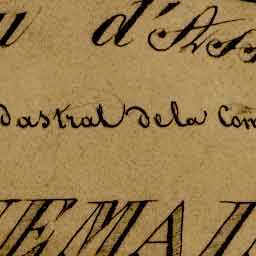 u d'Ass
dastral de la Com
NEMAI